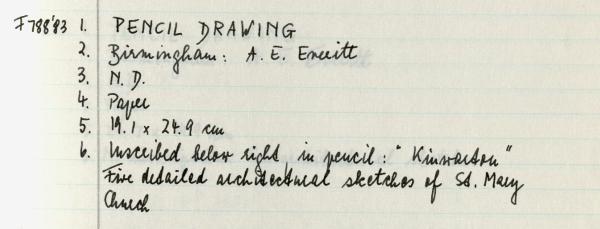 F788'93 1. PENCIL DRAWING
2. Birmingham: A. E. Everitt
3. N.D.
4. Paper
5. 19.1 x 24.9 cm
6. Inscribed below right, in pencil: "Kinwarton"
Five detailed architectural sketches of St. Mary
Church